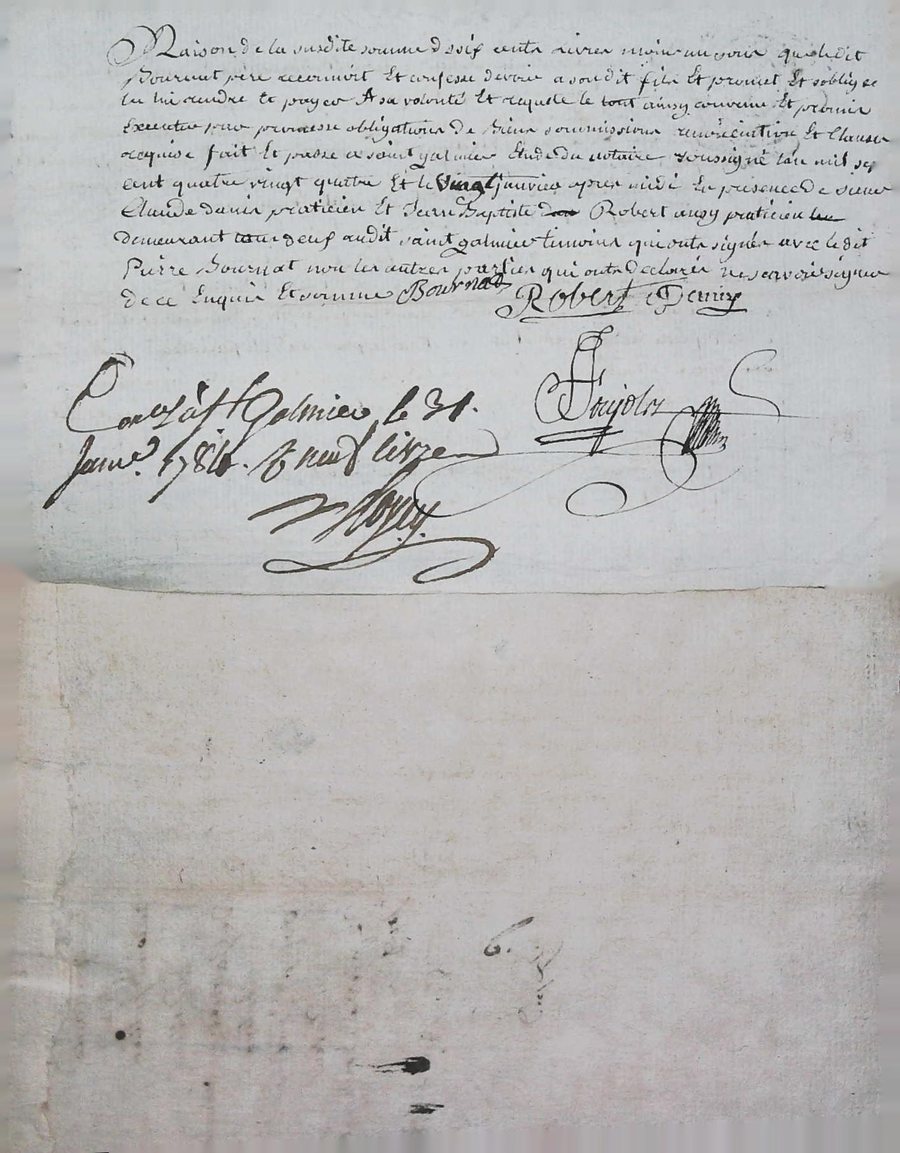 Raison de la susdite somme de six cents livres moins un sour que ledit
Bournat père reconnoit Et confesse devoir a son dit fils Et promet Et s'oblige de
la lui rendre Et payer A sa volonté Et requiste le tout ainsy convenu Et promis
Executer par promesse obligations de biens soumissions renonciation Et Clauses
requise fait Et passé a saint galmier Etude du notaire soussigné l'an mil sep
cent quatre vingt quatre Et le vingt janvier apres midi En presence de sieur
Claude denis praticien Et Jean Baptiste Robert aussy praticien
demeurant tous deux audit saint galmier temoins qui onts signés avec ledit
Pierre Bournat non les autres parties qui onts declarés ne scavoir signer
de ce Enquis Et somme Bournat
Robert Denis
Pujolz
Con.lé à St Galmier le 31.
Janv.r 1784. neuf livres
6.